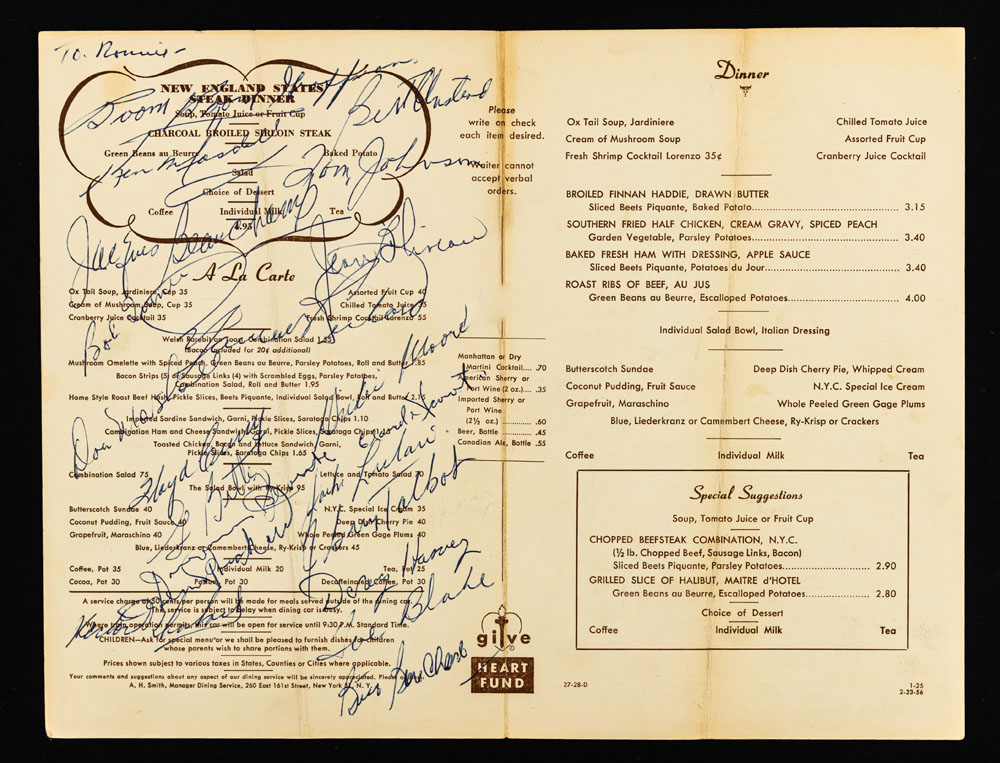 To. Ronnie -
NEW ENGLAND STATES
STEAK DINNER
Soup, Tomato Juice or Fruit Cup
CHARCOAL BROILED SIRLOIN STEAK
Green Beans au Beurre Baked Potato
Salad
Choice of Dessert
Coffee Individual Milk Tea
4.95
Boom Boom Geoffrion
Bert Olmstead
Ken Mosdell
Tom Johnson
Jacques Beauchamp
Jean Béliveau
A La Carte
Ox Tail Soup, Jardiniere, Cup 35 Assorted Fruit Cup 40
Cream of Mushroom Soup, Cup 35 Chilled Tomato Juice 35
Cranberry Juice Cocktail 35 Fresh Shrimp Cocktail Lorenzo 55
Welsh Rarebit on Toast, Combination Salad 1.85
(Bacon included for 20¢ additional)
Mushroom Omelette with Spiced Peach, Green Beans au Beurre, Parsley Potatoes, Roll and Butter 1.85
Bacon Strips (5) or Sausage Links (4) with Scrambled Eggs, Parsley Potatoes,
Combination Salad, Roll and Butter 1.95
Home Style Roast Beef Hash, Pickle Slices, Beets Piquante, Individual Salad Bowl, Roll and Butter 2.15
Sardine Sandwich, Garni, Pickle Slices, Saratoga Chips 1.10
Combination Ham and Cheese Sandwich, Garni, Pickle Slices, Saratoga Chips
Toasted Chicken, Bacon and Lettuce Sandwich, Garni,
Pickle Slices, Saratoga Chips 1.65
Combination Salad 75 Lettuce and Tomato Salad 70
The Salad Bowl with Ry-Krisp 95
Butterscotch Sundae 40 N.Y.C. Special Ice Cream 35
Coconut Pudding, Fruit Sauce 40 Deep Dish Cherry Pie 40
Grapefruit, Maraschino 40 Whole Peeled Green Gage Plums 40
Blue, Liederkranz or Camembert Cheese, Ry-Krisp or Crackers 45
Coffee, Pot 35 Individual Milk 20 Tea, Pot 25
Cocoa, Pot 30 Postum, Pot 30 Decaffeinated Coffee, Pot 30
A service charge of 50 cents per person will be made for meals served outside of the dining car.
The service is subject to delay when dining car is busy.
Where train operation permits, this car will be open for service until 9:30 P.M. Standard Time.
CHILDREN—Ask for special menu or we shall be pleased to furnish dishes for children
whose parents wish to share portions with them.
Prices shown subject to various taxes in States, Counties or Cities where applicable.
Your comments and suggestions about any aspect of our dining service will be sincerely appreciated. Please
A. H. Smith, Manager Dining Service, 260 East 161st Street, New York 51, N. Y.
Dickie Moore
Floyd Curry
Jean Talbot
Doug Harvey
Toe Blake
Butch Bouchard
Please
write on check
each item desired.
Waiter cannot
accept verbal
orders.
Manhattan or Dry
Martini Cocktail.... .70
American Sherry or
Port Wine (2 oz.).... .35
Imported Sherry or
Port Wine
(2½ oz.) .60
Beer, Bottle .45
Canadian Ale, Bottle .55
give
HEART
FUND
Dinner
Ox Tail Soup, Jardiniere Chilled Tomato Juice
Cream of Mushroom Soup Assorted Fruit Cup
Fresh Shrimp Cocktail Lorenzo 35¢ Cranberry Juice Cocktail
BROILED FINNAN HADDIE, DRAWN BUTTER
Sliced Beets Piquante, Baked Potato 3.15
SOUTHERN FRIED HALF CHICKEN, CREAM GRAVY, SPICED PEACH
Garden Vegetable, Parsley Potatoes 3.40
BAKED FRESH HAM WITH DRESSING, APPLE SAUCE
Sliced Beets Piquante, Potatoes du Jour 3.40
ROAST RIBS OF BEEF, AU JUS
Green Beans au Beurre, Escalloped Potatoes 4.00
Individual Salad Bowl, Italian Dressing
Butterscotch Sundae Deep Dish Cherry Pie, Whipped Cream
Coconut Pudding, Fruit Sauce N.Y.C. Special Ice Cream
Grapefruit, Maraschino Whole Peeled Green Gage Plums
Blue, Liederkranz or Camembert Cheese, Ry-Krisp or Crackers
Coffee Individual Milk Tea
Special Suggestions
Soup, Tomato Juice or Fruit Cup
CHOPPED BEEFSTEAK COMBINATION, N.Y.C.
(½ lb. Chopped Beef, Sausage Links, Bacon)
Sliced Beets Piquante, Parsley Potatoes 2.90
GRILLED SLICE OF HALIBUT, MAITRE d'HOTEL
Green Beans au Beurre, Escalloped Potatoes 2.80
Choice of Dessert
Coffee Individual Milk Tea
27-28-D 1-25
2-23-56